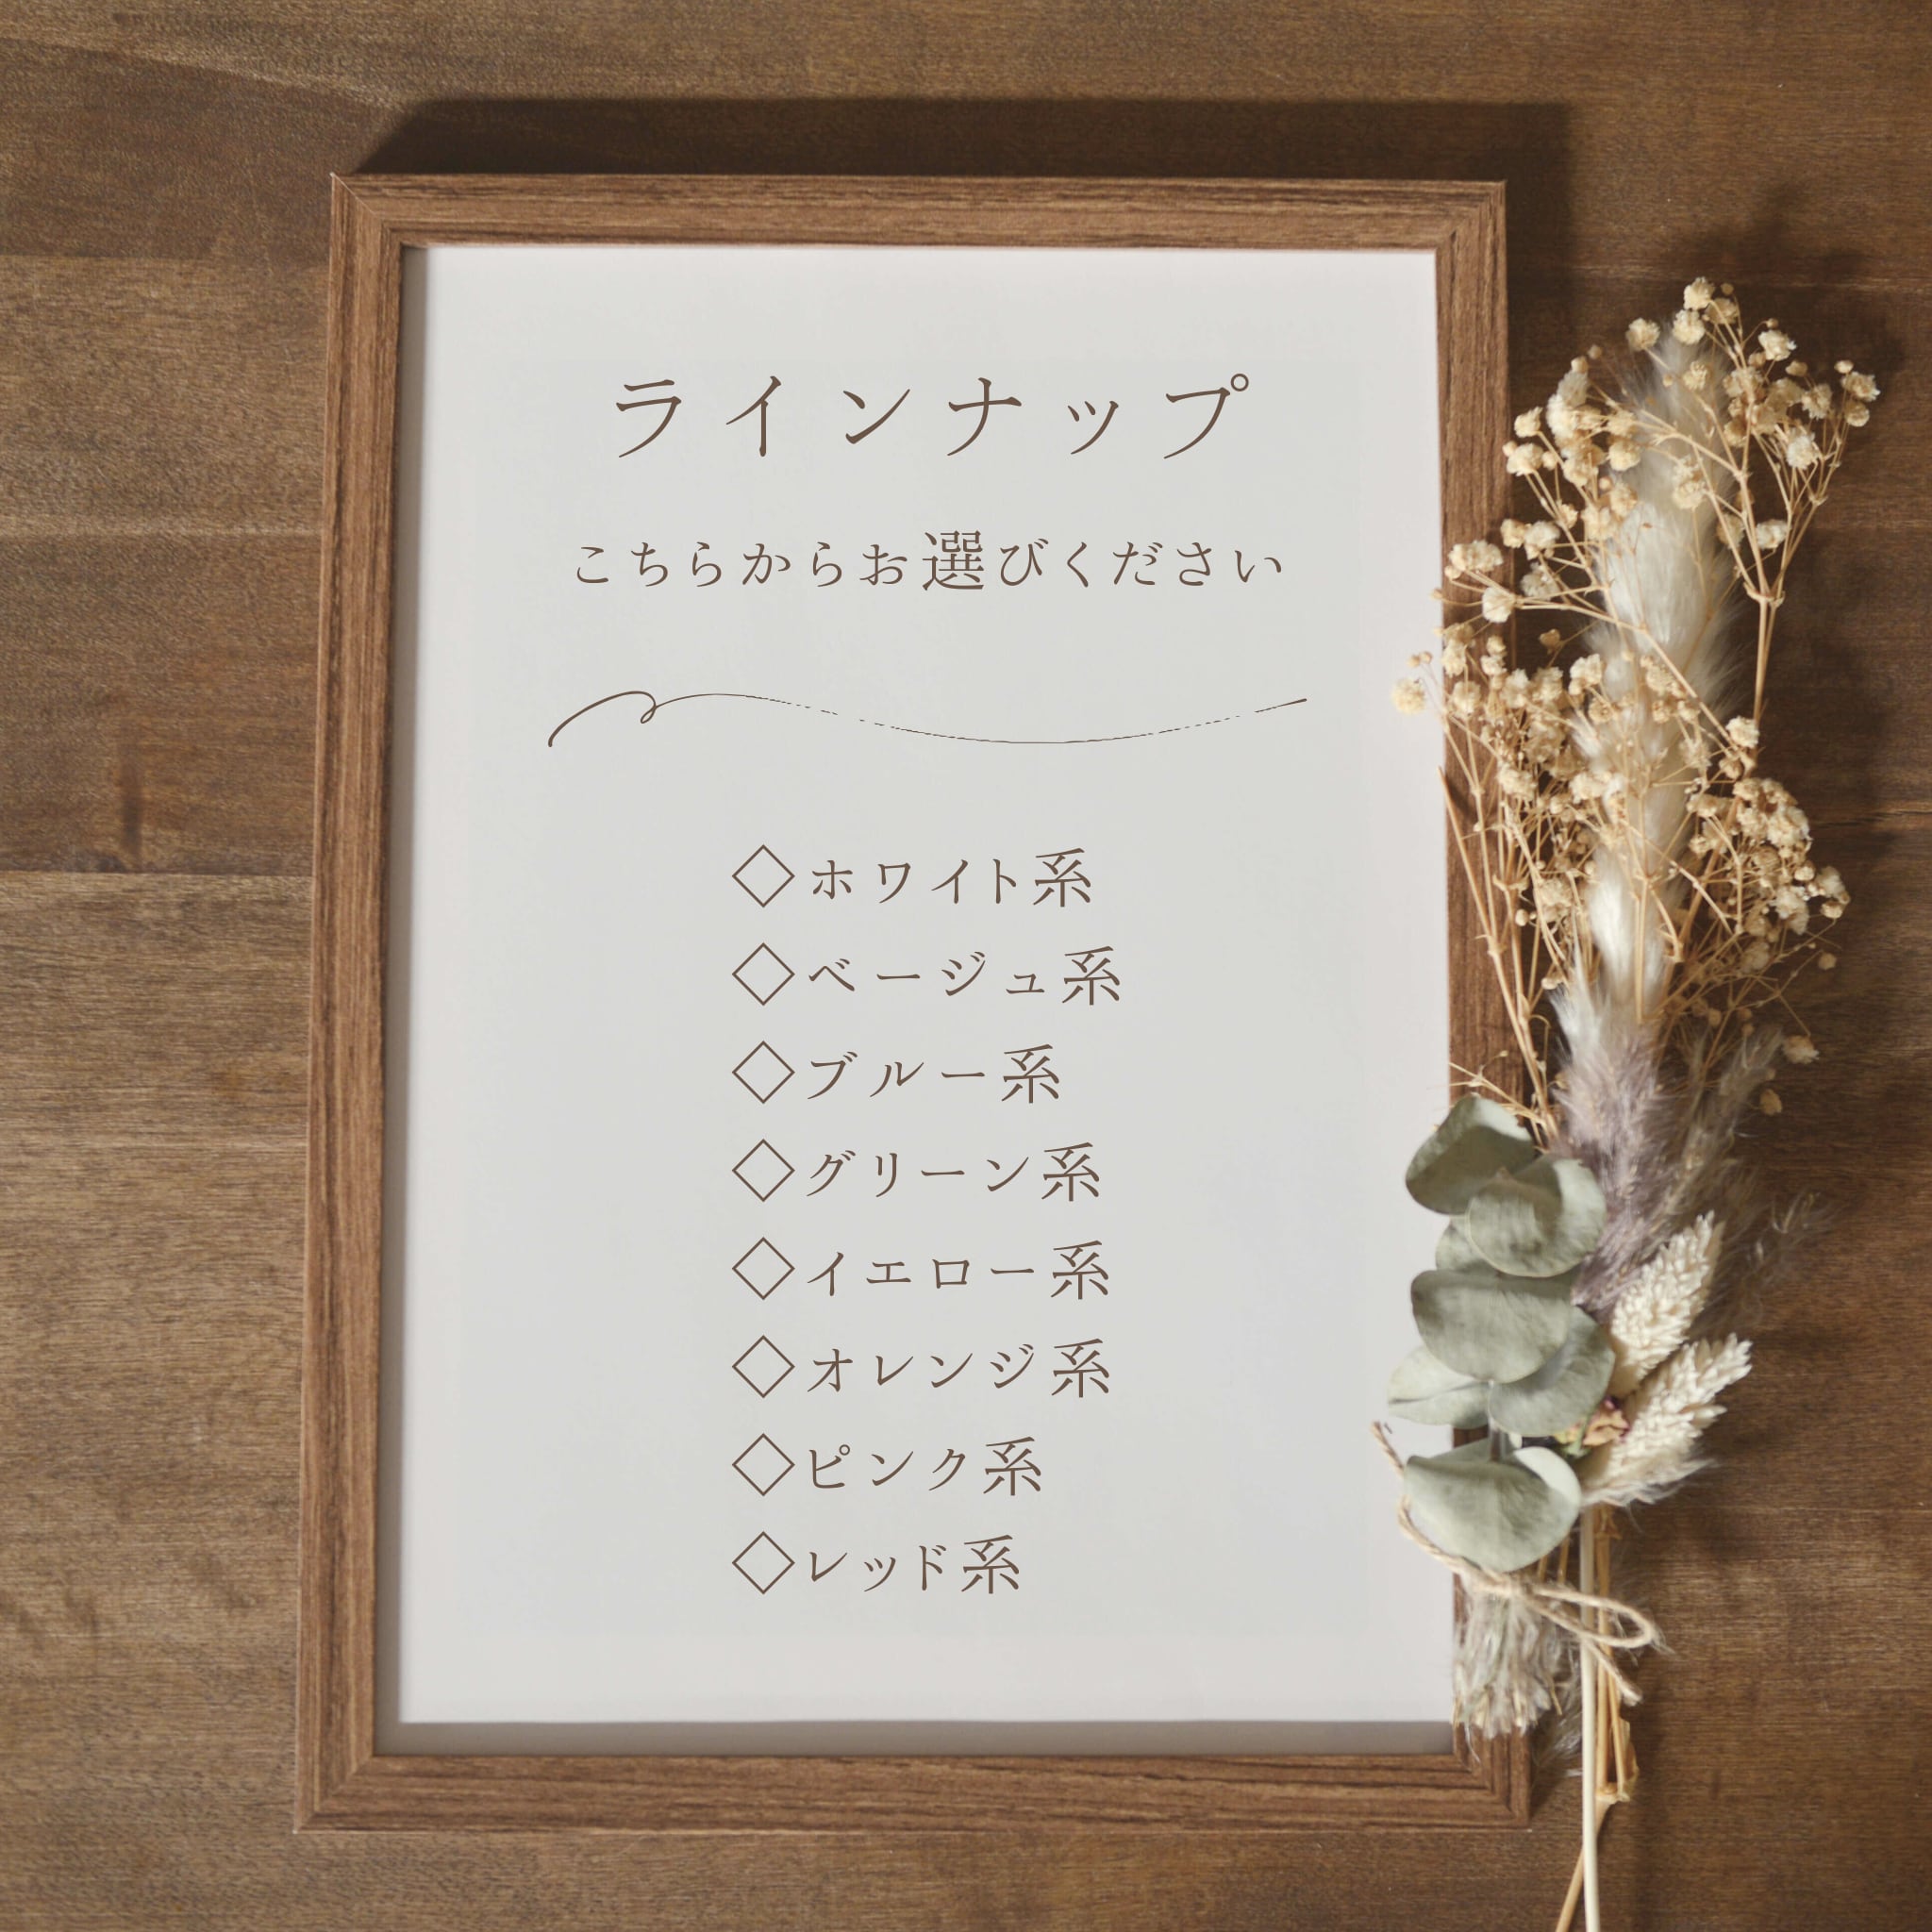 ラインナップ
こちらからお選びください
◇ホワイト系
◇ベージュ系
◇ブルー系
◇グリーン系
◇イエロー系
◇オレンジ系
◇ピンク系
◇レッド系